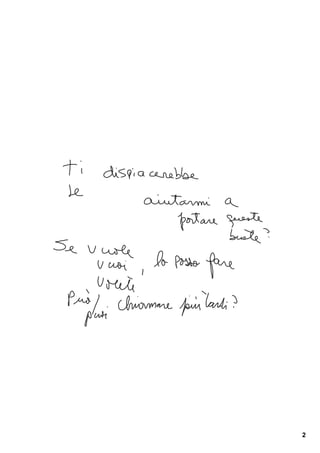 ti dispiacerebbe
Le
aiutarmi a
portare queste
buste?
Se vuole
vuoi, lo posso fare
volete,
Può/ chiamare più tardi?
puoi
2